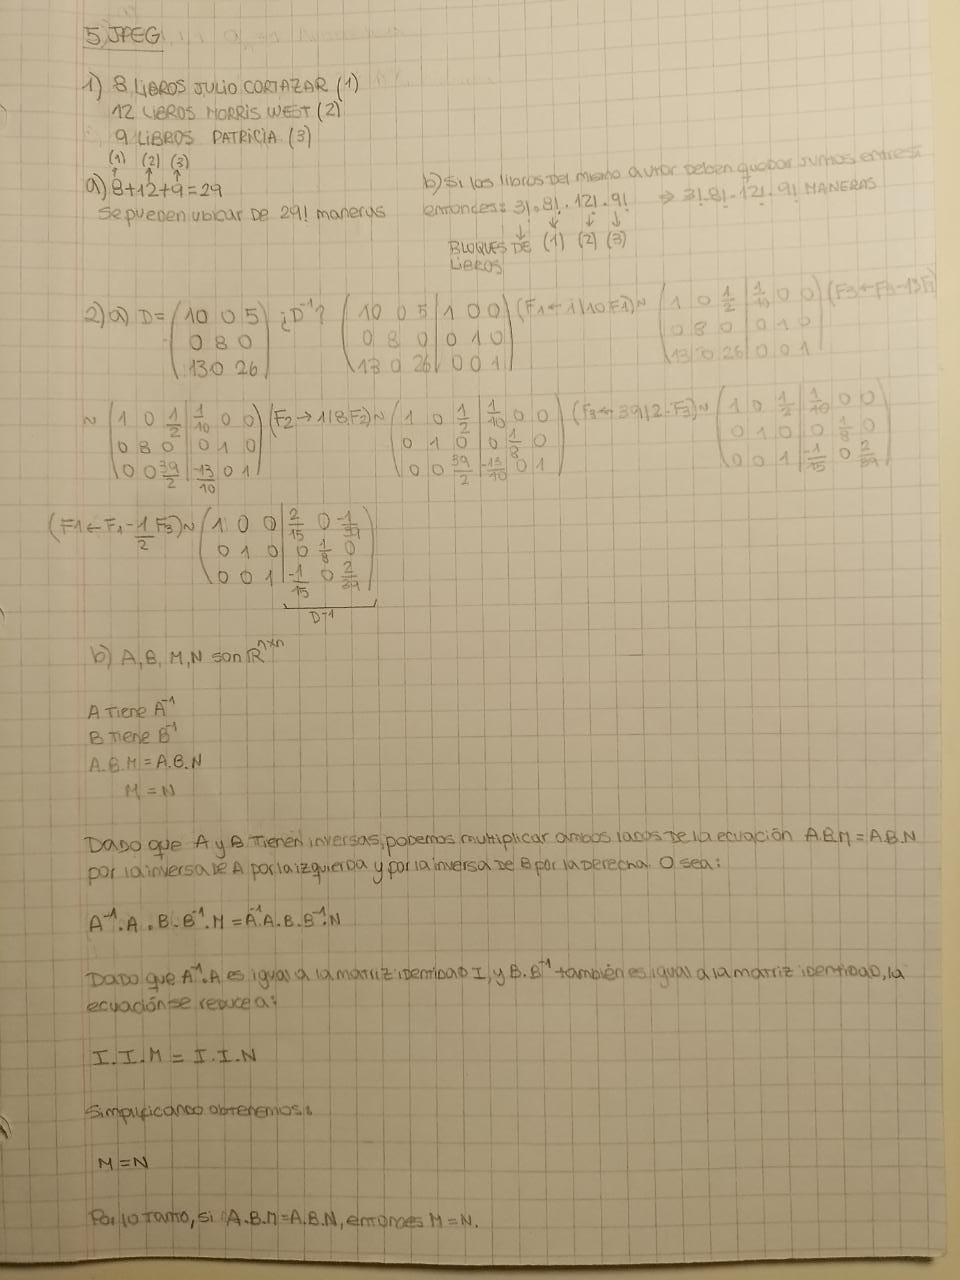 5 JPEG
1) 8 LIBROS JULIO CORTAZAR (1)
12 LIBROS MORRIS WEST (2)
9 LIBROS PATRICIA (3)
(1) (2) (3)
↑ ↑ ↑
a) 8+12+9=29
se pueden ubicar de 29! maneras
b) si los libros del mismo autor deben quedar juntos entre si
entonces: 3!.8!.12!.9! ⇒ 3!.8!.12!.9! MANERAS
↓ ↓ ↓ ↓
BLOQUES DE (1) (2) (3)
LIBROS
2) a) D= (10 0 5 ¿D⁻¹? (10 0 5 | 1 0 0) (F1←1/10 F1)~ (1 0 1/2 | 1/10 0 0) (F3←F3-13F1)
0 8 0 0 8 0 | 0 1 0 0 8 0 | 0 1 0
13 0 26) 13 0 26 | 0 0 1 13 0 26 | 0 0 1
~ (1 0 1/2 | 1/10 0 0) (F2→1/8.F2)~ (1 0 1/2 | 1/10 0 0) (F3←39/2.F3)~ (1 0 1/2 | 1/10 0 0)
0 8 0 | 0 1 0 0 1 0 | 0 1/8 0 0 1 0 | 0 1/8 0
0 0 39/2 | -13/10 0 1 0 0 39/2 | -13/10 0 1 0 0 1 | -1/15 0 2/39
(F1←F1-1/2 F3)~ (1 0 0 | 2/15 0 -1/39)
0 1 0 | 0 1/8 0
0 0 1 | -1/15 0 2/39
D-1
b) A, B, M, N son ℝⁿˣⁿ
A Tiene A⁻¹
B Tiene B⁻¹
A.B.M = A.B.N
M = N
Dado que A y B Tienen inversas, podemos multiplicar ambos lados de la ecuación A.B.M = A.B.N
por la inversa de A por la izquierda y por la inversa de B por la derecha. O sea:
A⁻¹.A.B.B⁻¹.M = A⁻¹.A.B.B⁻¹.N
Dado que A⁻¹.A es igual a la matriz identidad I, y B.B⁻¹ también es igual a la matriz identidad, la
ecuación se reduce a:
I.I.M = I.I.N
Simplificando obtenemos:
M = N
Por lo Tanto, si A.B.M=A.B.N, entonces M = N.